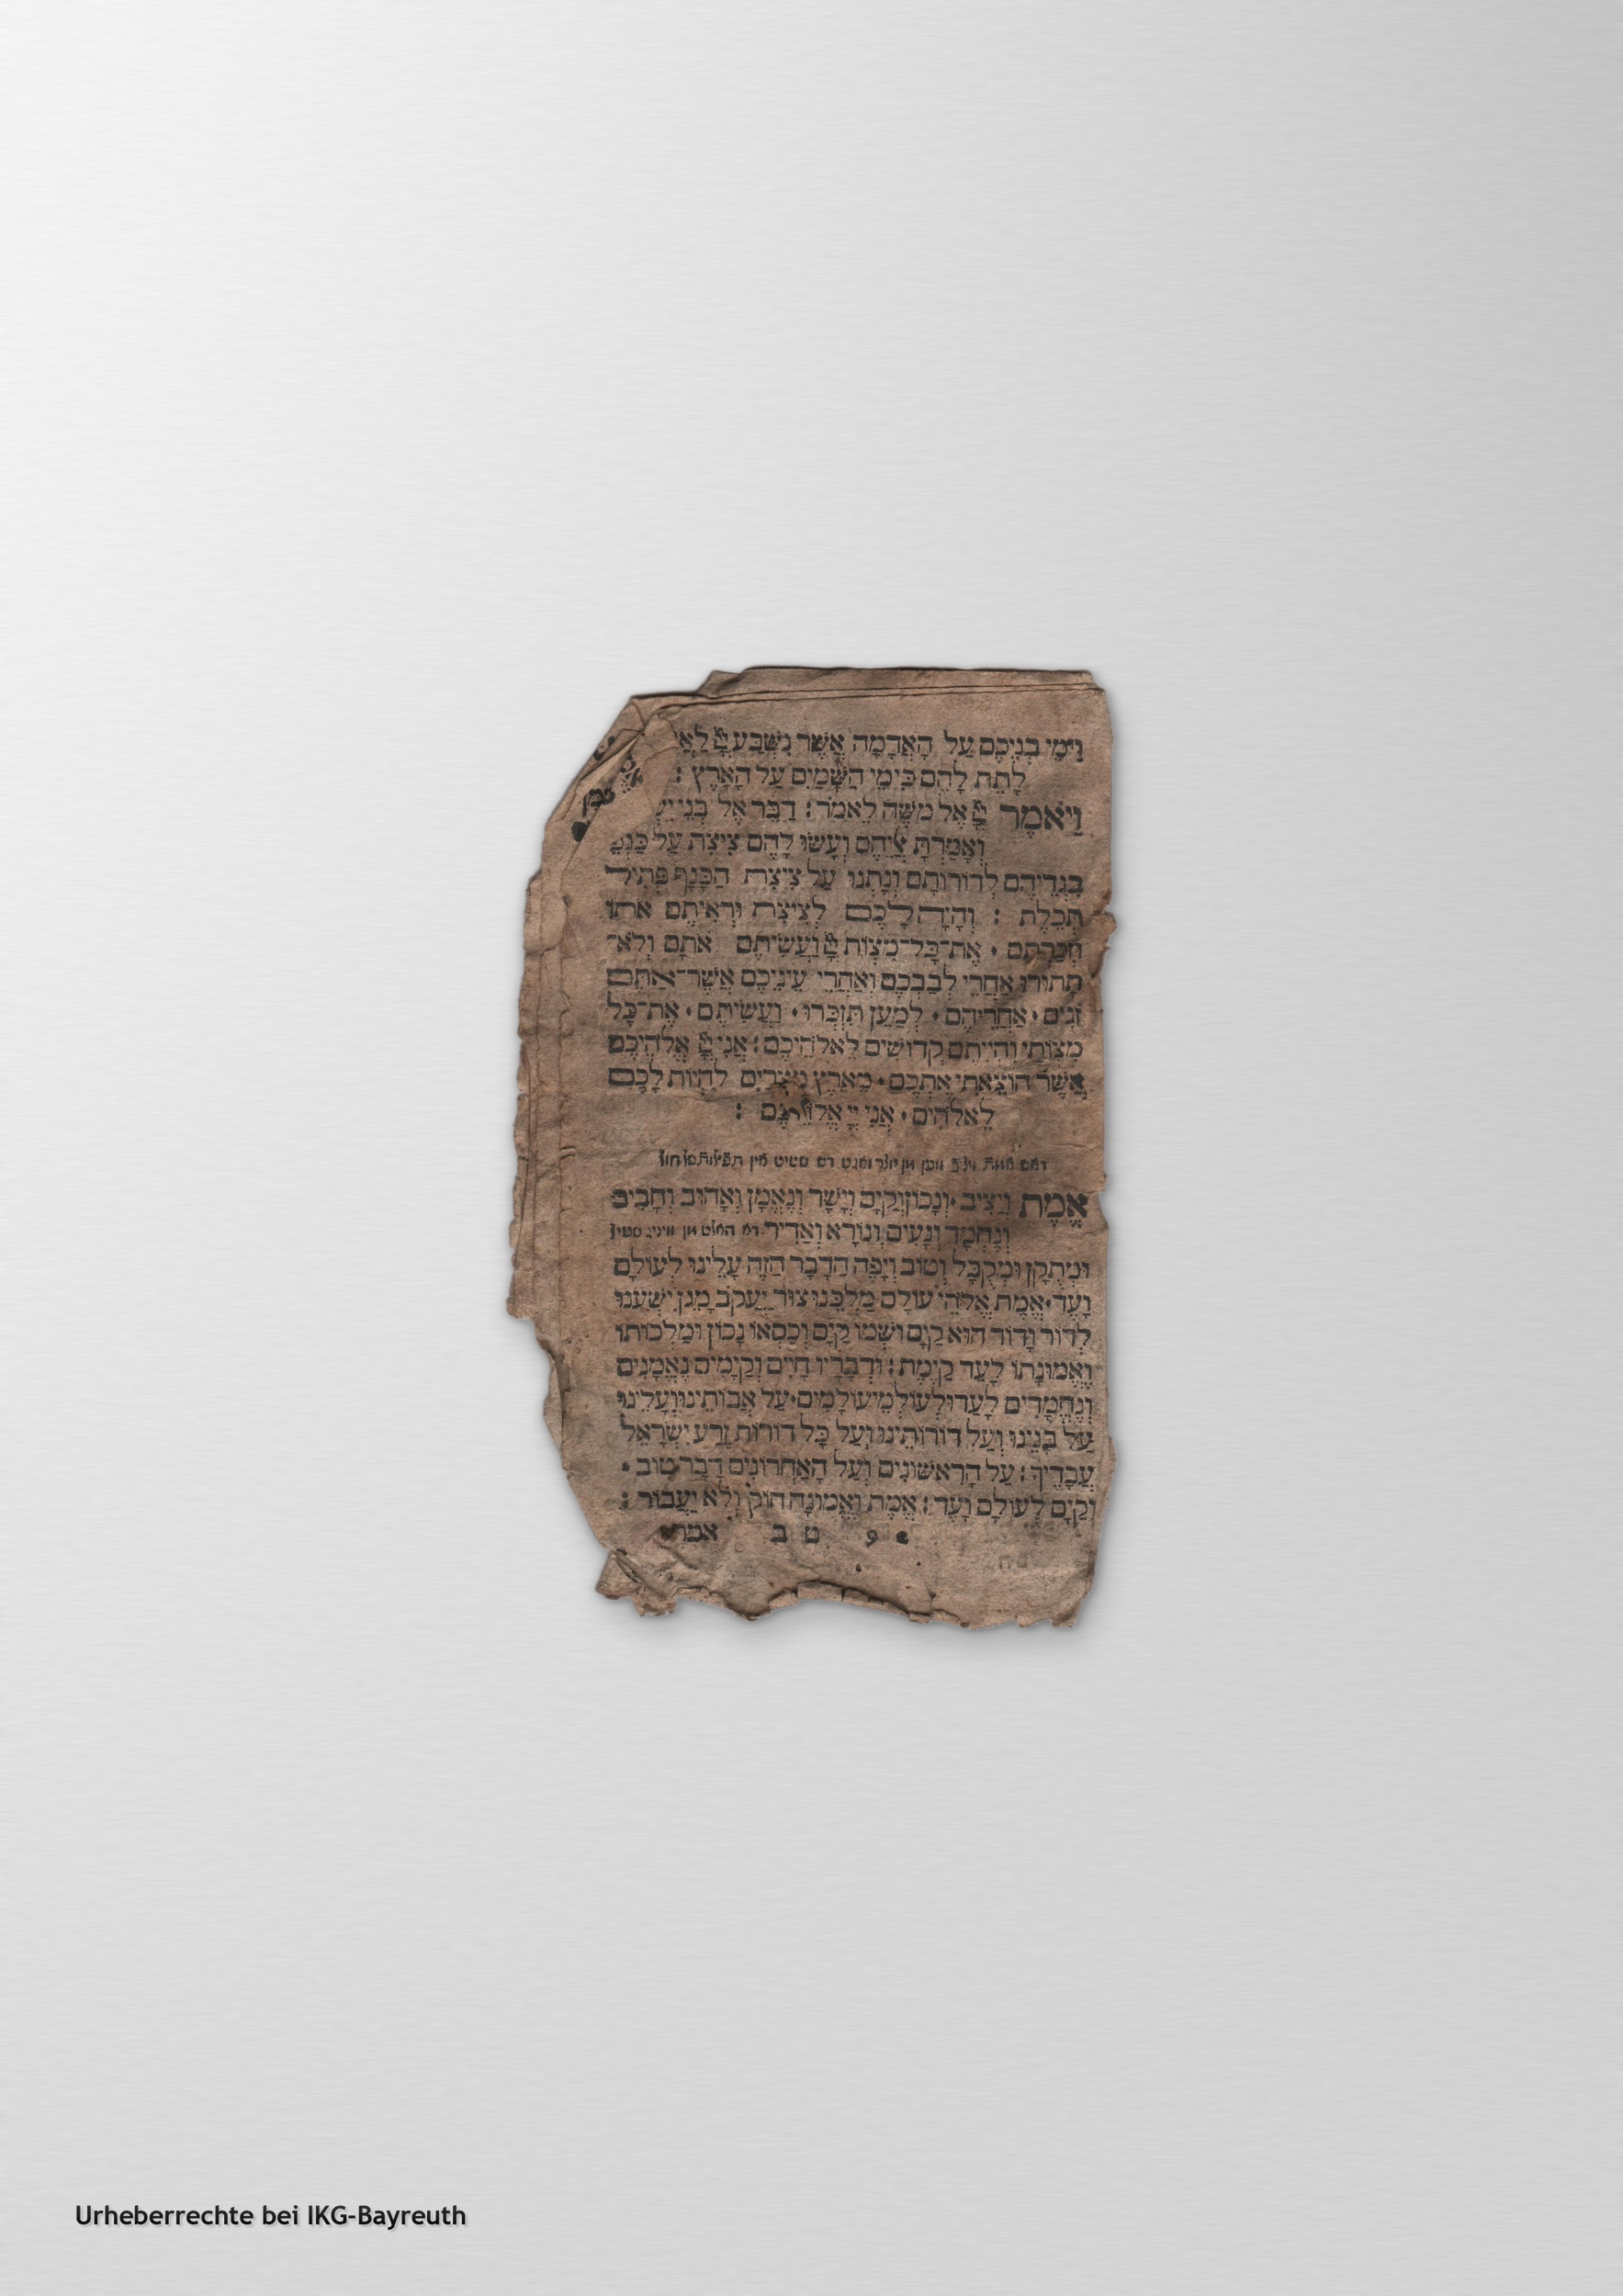 וִימֵי בְנֵיכֶם עַל הָאֲדָמָה אֲשֶׁר נִשְׁבַּע יְיָ
לָתֵת לָהֶם כִּימֵי הַשָּׁמַיִם עַל הָאָרֶץ :
וַיֹּאמֶר יְיָ אֶל מֹשֶׁה לֵאמֹר : דַּבֵּר אֶל בְּנֵי
וְאָמַרְתָּ אֲלֵיהֶם וְעָשׂוּ לָהֶם צִיצִת עַל כַּנְפֵי
בִגְדֵיהֶם לְדוֹרוֹתָם וְנָתְנוּ עַל צִיצִת הַכָּנָף פְּתִיל
תְּכֵלֶת : וְהָיָה לָכֶם לְצִיצִת וּרְאִיתֶם אֹתוֹ
וּזְכַרְתֶּם • אֶת־כָּל־מִצְוֹת יְיָ וַעֲשִׂיתֶם אֹתָם וְלֹא־
תָתוּרוּ אַחֲרֵי לְבַבְכֶם וְאַחֲרֵי עֵינֵיכֶם אֲשֶׁר־אַתֶּם
זֹנִים • אַחֲרֵיהֶם • לְמַעַן תִּזְכְּרוּ • וַעֲשִׂיתֶם • אֶת־כָּל
מִצְוֹתַי וִהְיִיתֶם קְדוֹשִׁים לֵאלֹהֵיכֶם : אֲנִי יְיָ אֱלֹהֵיכֶם
אֲשֶׁר הוֹצֵאתִי אֶתְכֶם • מֵאֶרֶץ מִצְרַיִם לִהְיוֹת לָכֶם
לֵאלֹהִים • אֲנִי יְיָ אֱלֹהֵיכֶם :
אֱמֶת וְיַצִּיב • וְנָכוֹן וְקַיָּם וְיָשָׁר וְנֶאֱמָן וְאָהוּב וְחָבִיב
וְנֶחְמָד וְנָעִים וְנוֹרָא וְאַדִּיר
וּמְתֻקָּן וּמְקֻבָּל וְטוֹב וְיָפֶה הַדָּבָר הַזֶּה עָלֵינוּ לְעוֹלָם
וָעֶד • אֱמֶת אֱלֹהֵי עוֹלָם מַלְכֵּנוּ צוּר יַעֲקֹב מָגֵן יִשְׁעֵנוּ
לְדוֹר וָדוֹר הוּא קַיָּם וּשְׁמוֹ קַיָּם וְכִסְאוֹ נָכוֹן וּמַלְכוּתוֹ
וֶאֱמוּנָתוֹ לָעַד קַיֶּמֶת : וּדְבָרָיו חָיִים וְקַיָּמִים נֶאֱמָנִים
וְנֶחֱמָדִים לָעַד וּלְעוֹלְמֵי עוֹלָמִים • עַל אֲבוֹתֵינוּ וְעָלֵינוּ
עַל בָּנֵינוּ וְעַל דּוֹרוֹתֵינוּ וְעַל כָּל דּוֹרוֹת זֶרַע יִשְׂרָאֵל
עֲבָדֶיךָ : עַל הָרִאשׁוֹנִים וְעַל הָאַחֲרוֹנִים דָּבָר טוֹב •
וְקַיָּם לְעוֹלָם וָעֶד : אֱמֶת וֶאֱמוּנָה חוֹק וְלֹא יַעֲבוֹר :
ט ב
Urheberrechte bei IKG-Bayreuth